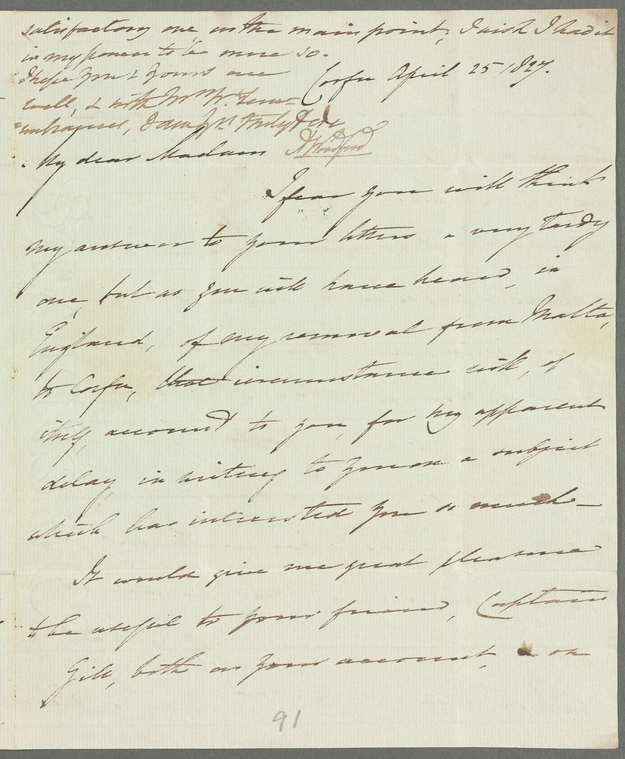 satisfactory one, on the main point, I wish I had it
in my power to be more so.
I hope you & yours are
well, & with Mrs W.
I am yrs truly
Corfu April 25 1827.
My dear Madam
I fear you will think
my answer to your letters a very tardy
one, but as you will have heard, in
England, of my removal from Malta,
to Corfu, that circumstance will, of
itself, account to you, for my apparent
delay, in writing to you on a subject
which has interested you so much—
It would give me great pleasure
to be useful to your friend, Captain
Gill, both on your account, & on
91